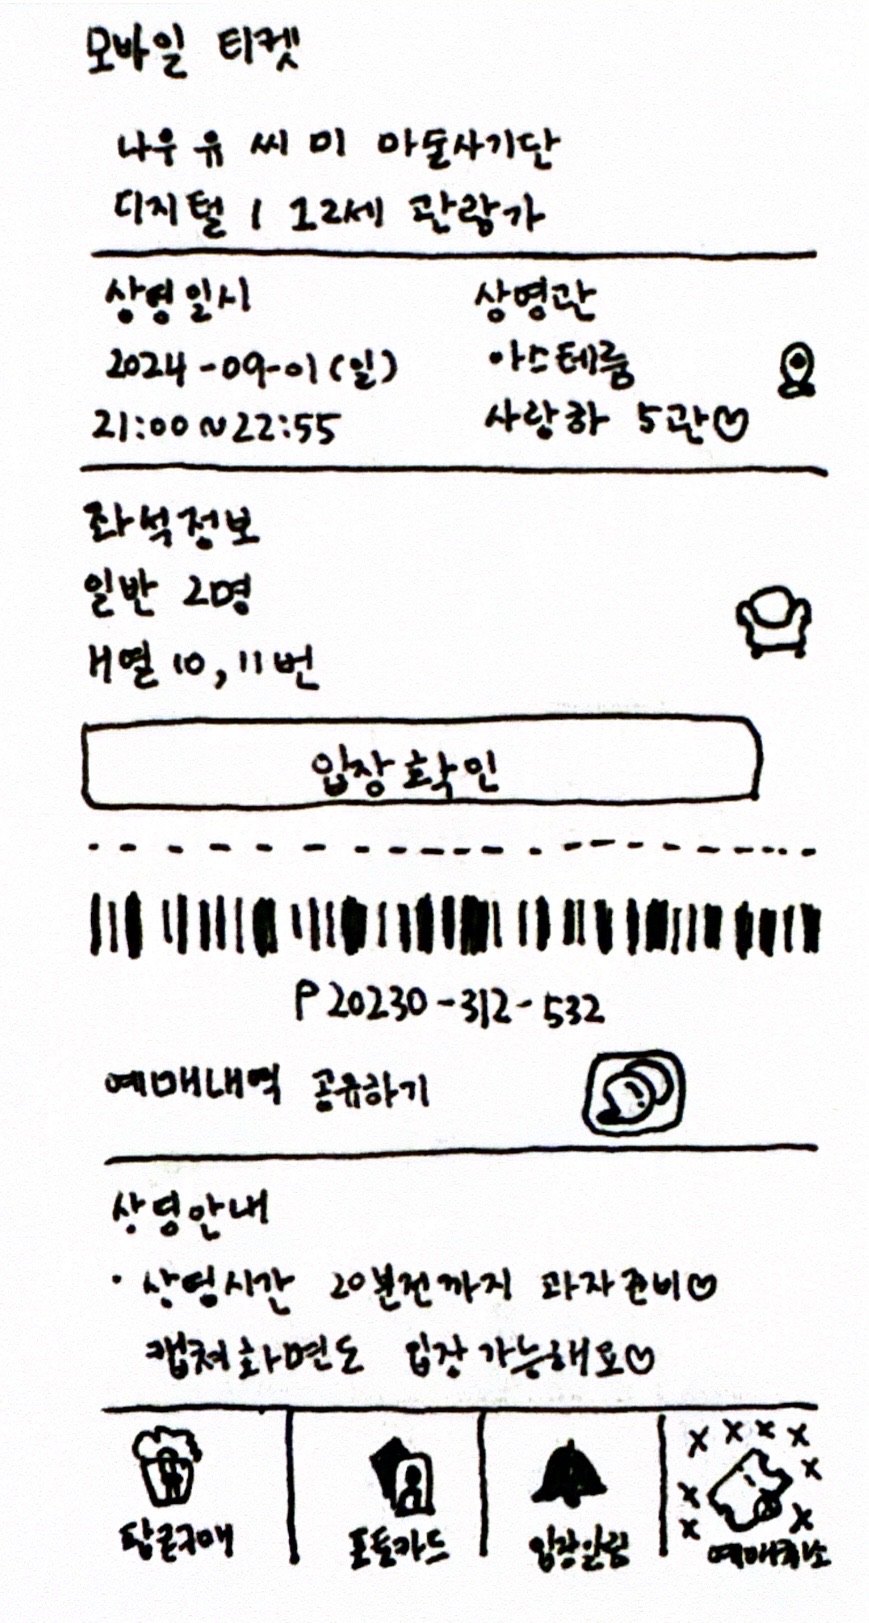 모바일 티켓
나우 유 씨 미 마술사기단
디지털 | 12세 관람가
상영일시
2024-09-01(일)
21:00~22:55
상영관
아스테룸
사랑하 5관♡
좌석정보
일반 2명
H열 10, 11번
입장확인
P20230-312-532
예매내역 공유하기
상영안내
· 상영시간 20분전까지 과자준비♡
캡쳐화면도 입장가능해요♡
팝콘구매
포토카드
입장알림
예매취소